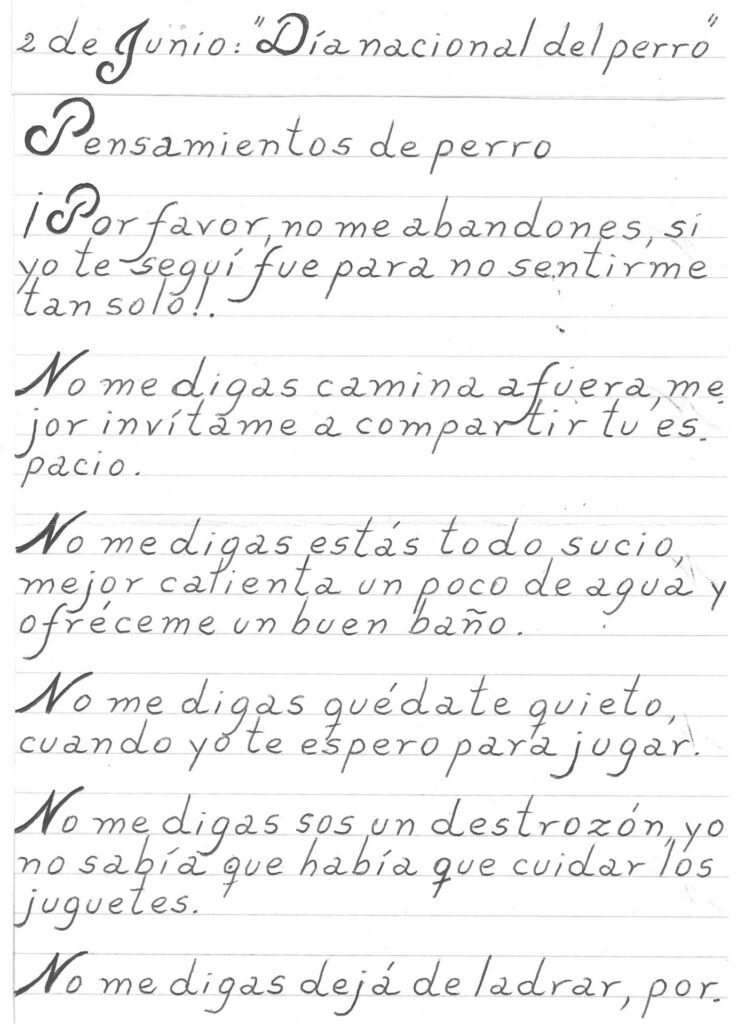 2 de Junio: "Día nacional del perro"
Pensamientos de perro
¡Por favor, no me abandones, si
yo te seguí fue para no sentirme
tan solo!.
No me digas camina afuera, me
jor invítame a compartir tu es-
pacio.
No me digas estás todo sucio,
mejor calienta un poco de agua y
ofréceme un buen baño.
No me digas quédate quieto,
cuando yo te espero para jugar.
No me digas sos un destrozón, yo
no sabía que había que cuidar los
juguetes.
No me digas dejá de ladrar, por-